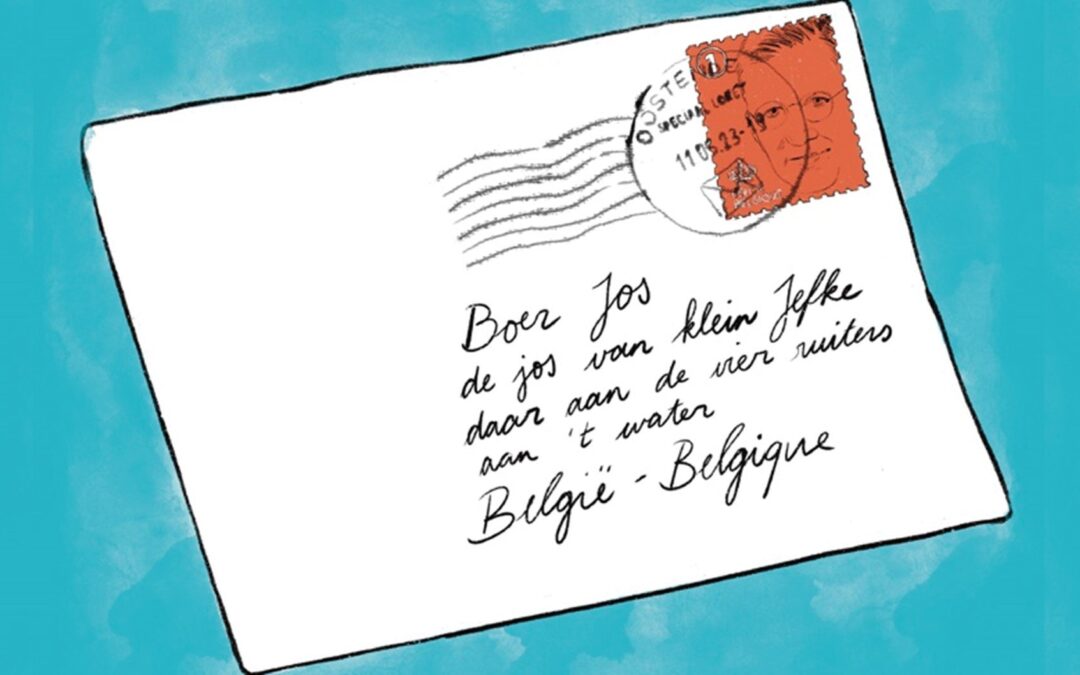 1
OOSTENDE
11 08.23-19
Boer Jos
de jos van klein Jefke
daar aan de vier ruiters
aan 't water
België - Belgique